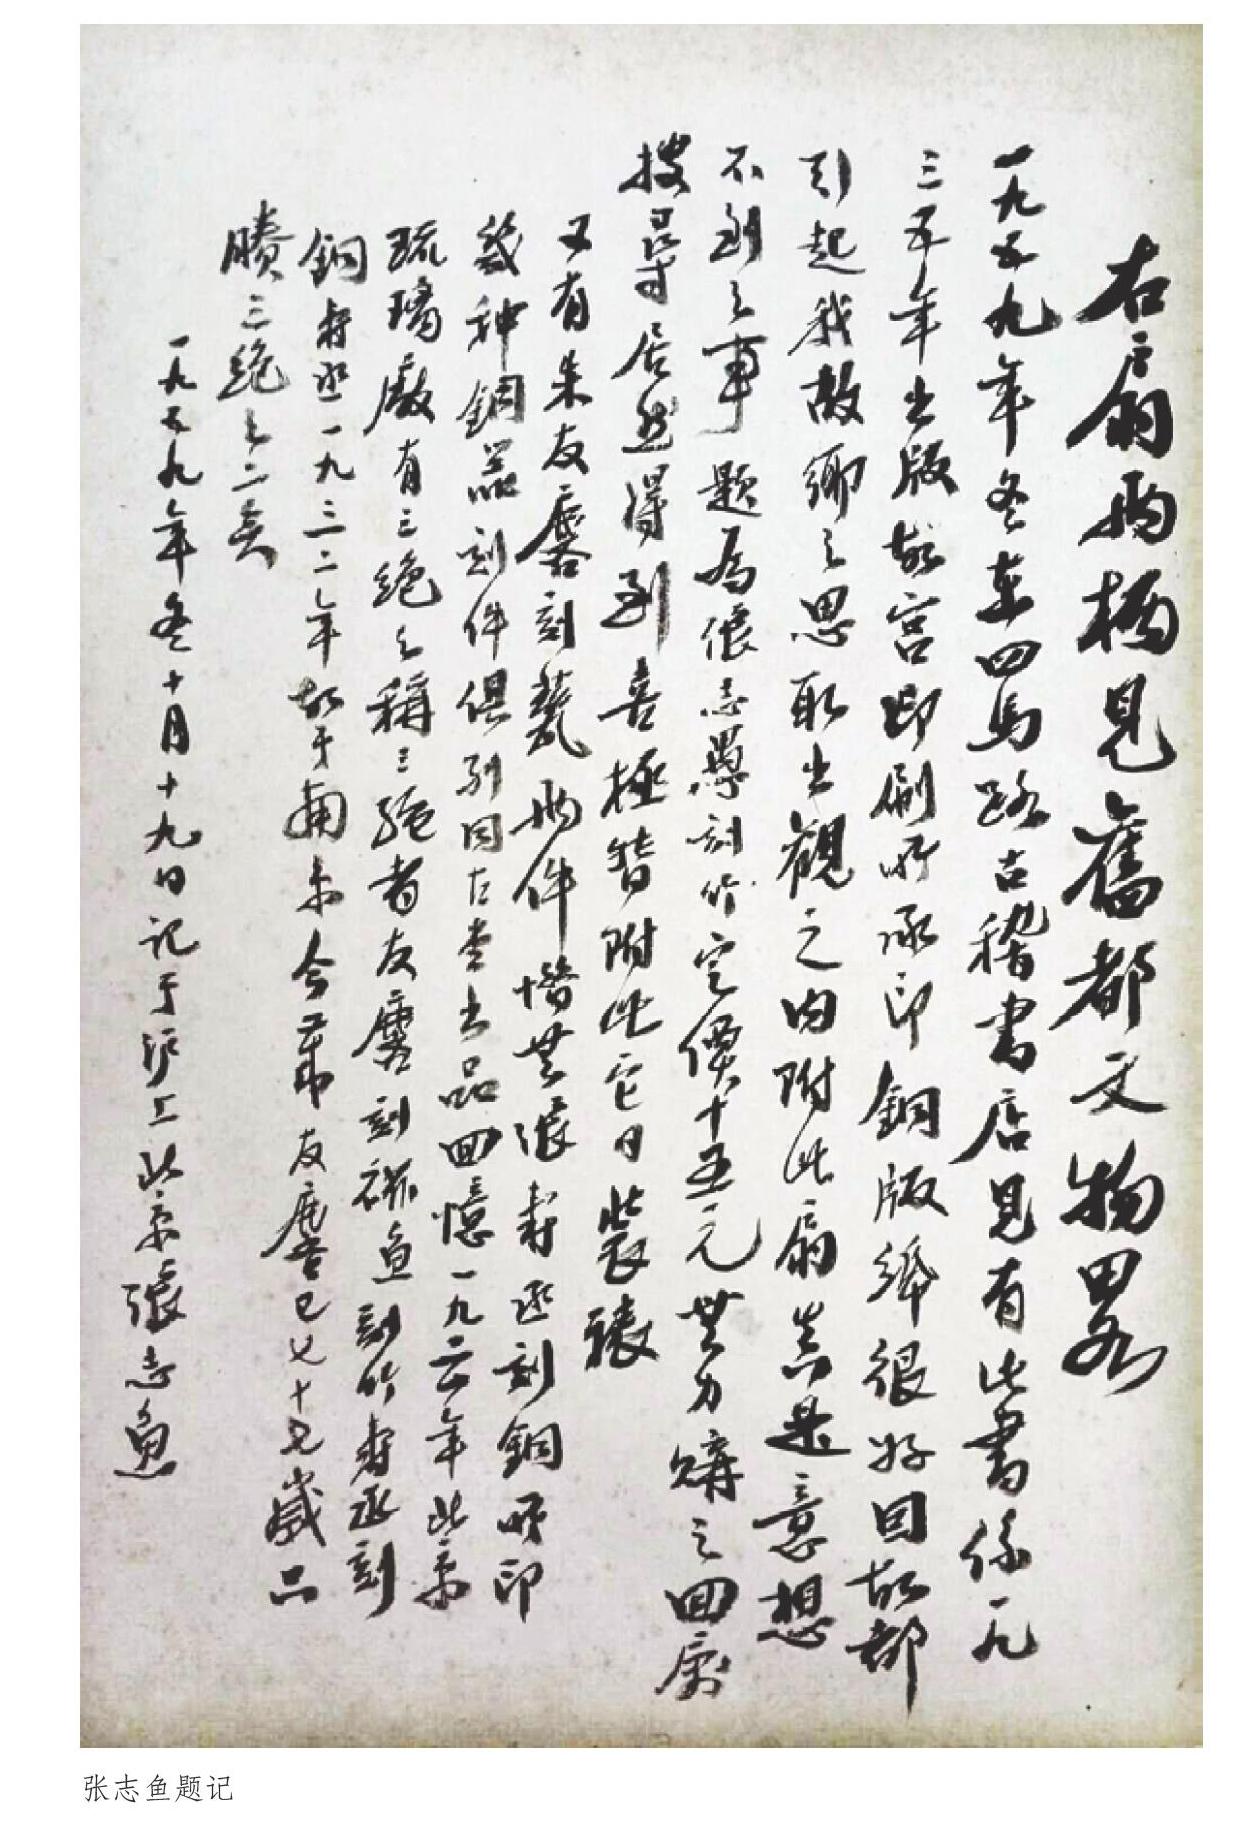 右扇两柄見舊都文物畧
一九五九年冬在四馬路古稽書店見有此書係一九
三五年出版故宮印刷所承印銅版紙很好因故都
引起我故鄉之思取出觀之内附此扇真是意想
不到之事題為張志魚刻竹定價十五元無力購之回寓
搜尋居然得到喜極暫附此它日裝裱
又有朱友麐刻瓷两件惜無張壽丞刻銅所印
幾种銅器刻件俱列同古堂出品回憶一九三〇年北京
琉璃廠有三絕之稱三絕者友麐刻磁魚刻竹壽丞刻
銅壽丞一九三二年故于南京今苐友麐已七十九歲只
賸三絕之二矣
一九五九年冬十月十九日记于滬上北京張志魚
张志鱼题记